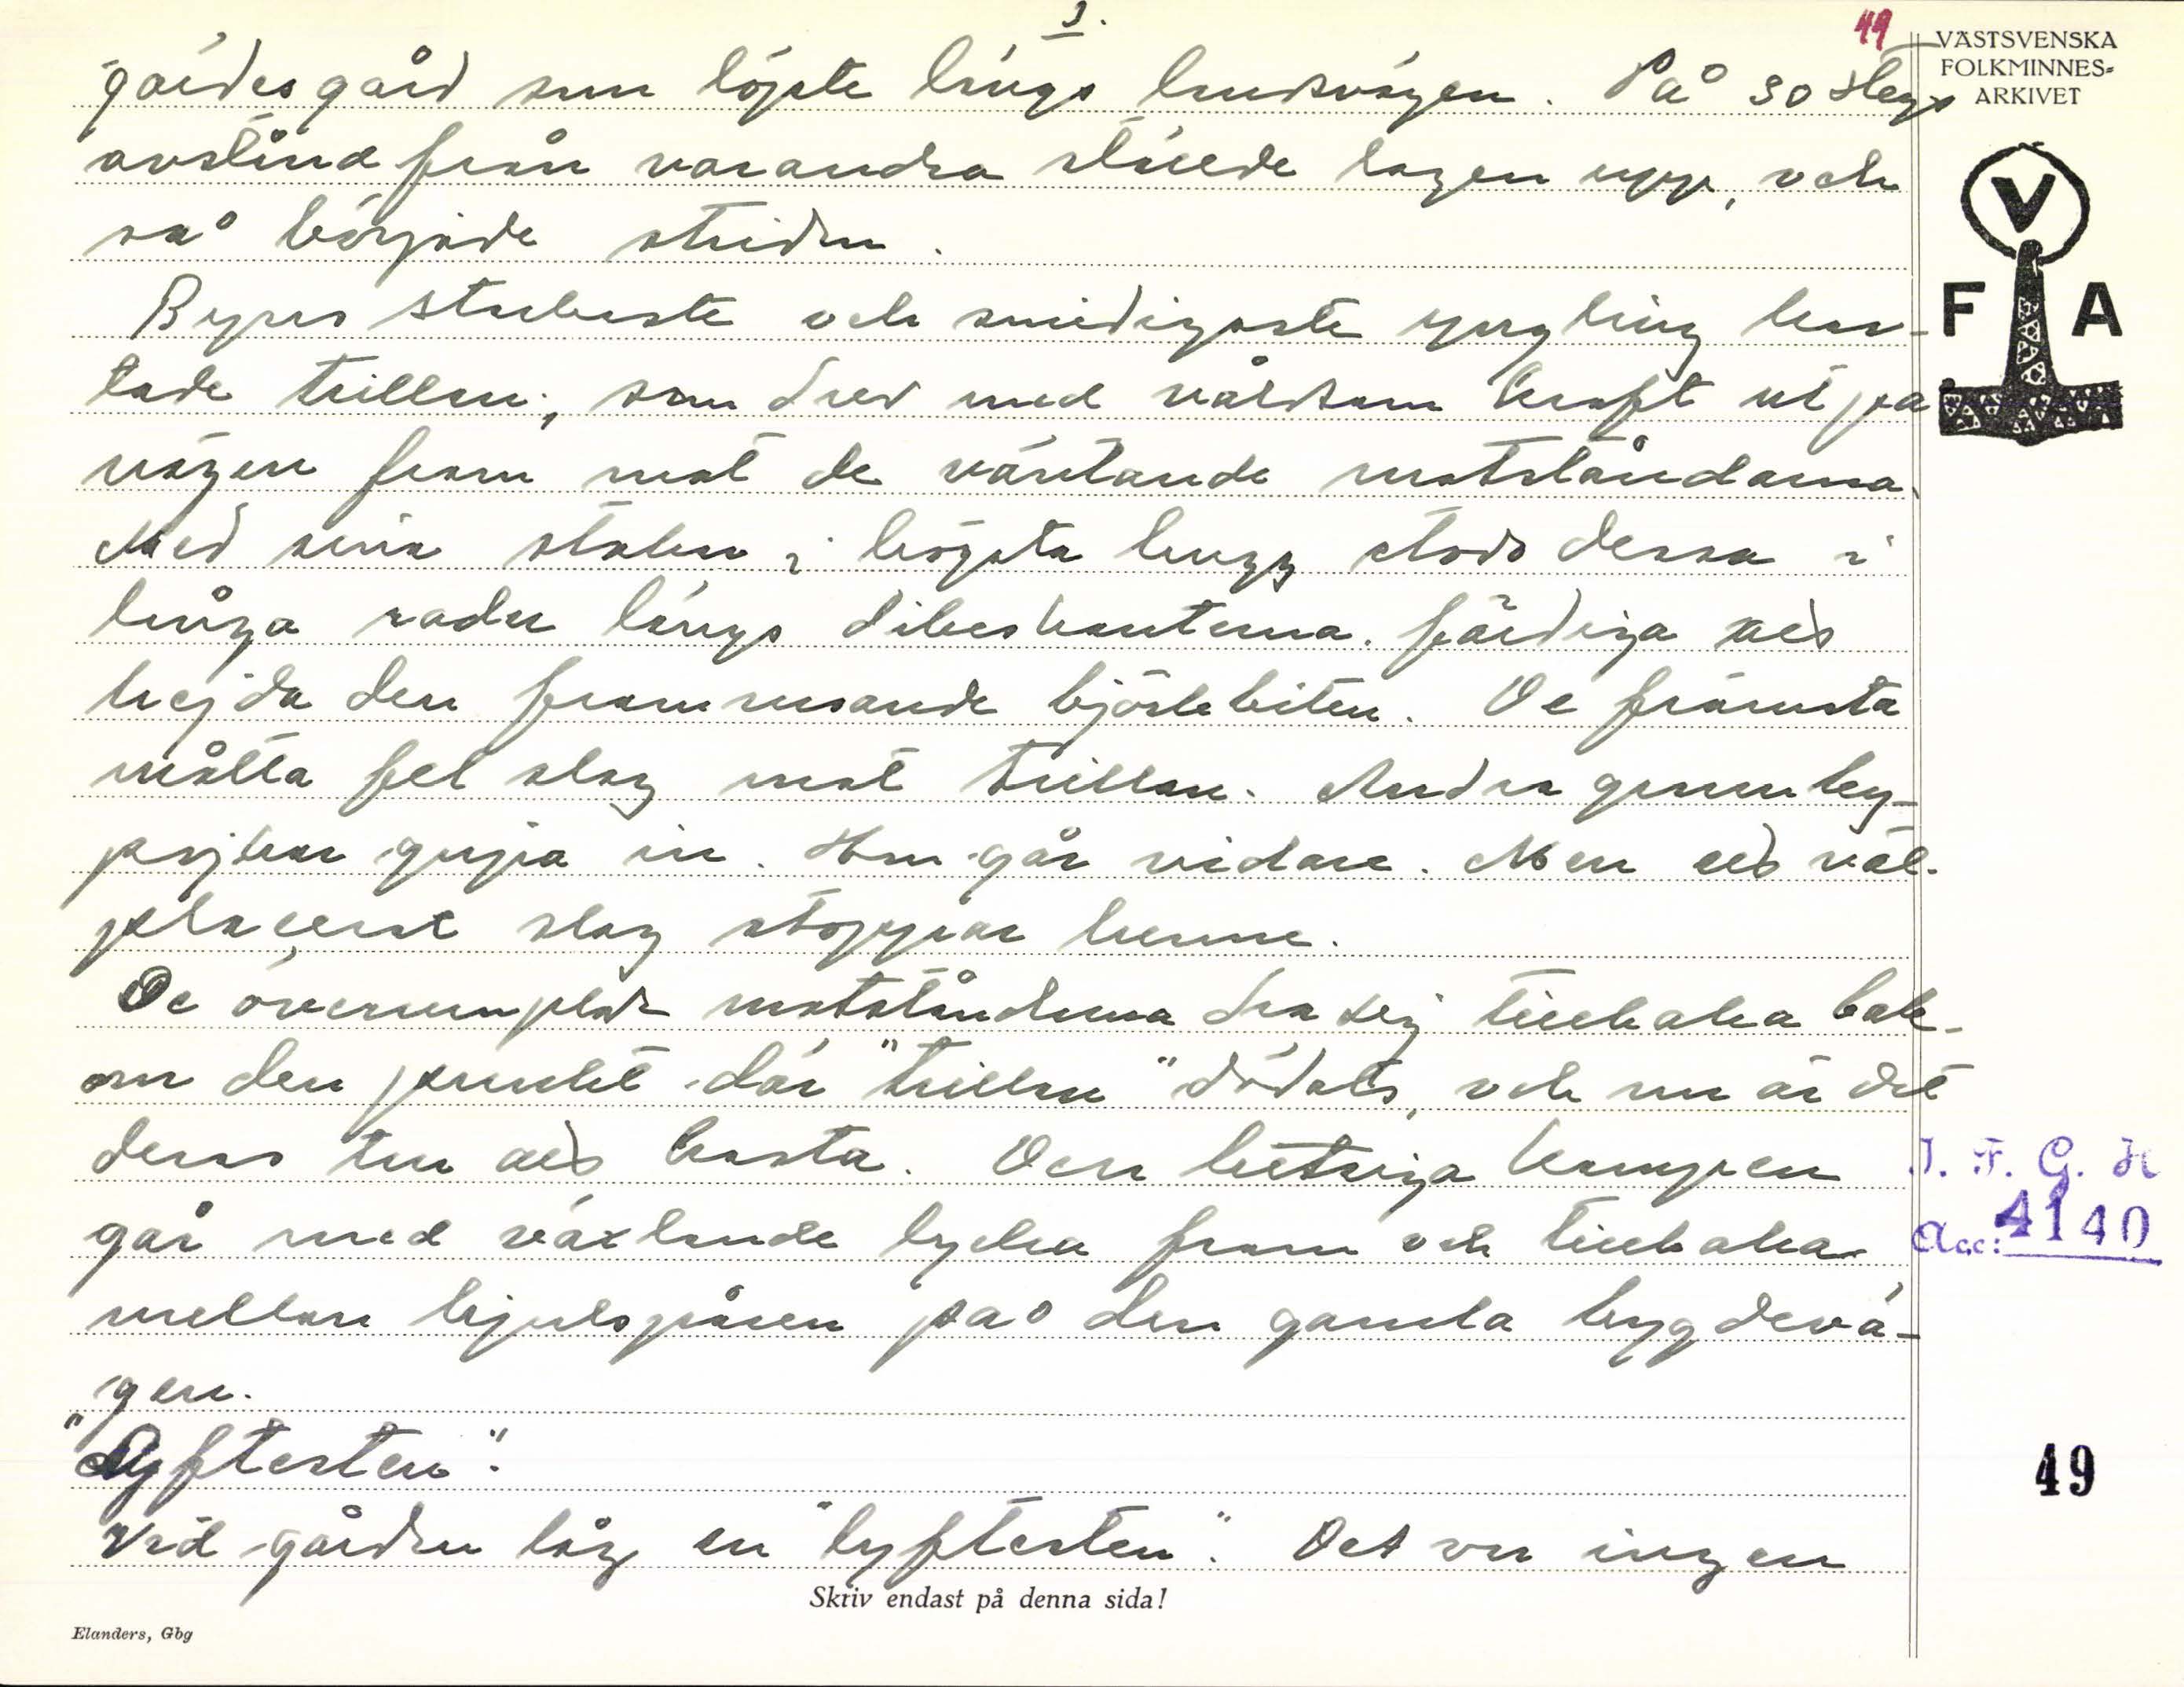 3.
49
gärdesgård som löpte längs landsvägen. På 30 stegs
avstånd från varandra ställde lagen upp, och
så började striden.
Byns starkaste och smidigaste yngling kas-
tade trillan, som drev med våldsam kraft ut på
vägen fram mot de väntande motståndarna.
Med sina stakar i högsta hugg stodo dessa i
långa rader längs dikeskanterna. färdiga att
hejda den framrusande björkbiten. De främsta
måtta fel slag mot trillan. Andra grannby-
pojkar gripa in. Hon går vidare. Men ett väl-
placerat slag stoppar henne.
De överrumplade motståndarna dra sig tillbaka bak-
om den punkt där "trillan" dödats, och nu är det
deras tur att kasta. Den hetsiga kampen
går med växlande lycka fram och tillbaka
mellan hjulspåren på den gamla bygdevä-
gen.
"Lyftesten".
Vid gården låg en "lyftesten". Det var ingen
Skriv endast på denna sida!
Elanders, Gbg
VÄSTSVENSKA
FOLKMINNES-
ARKIVET
V
F A
I. F. G. H
Acc: 4140
49